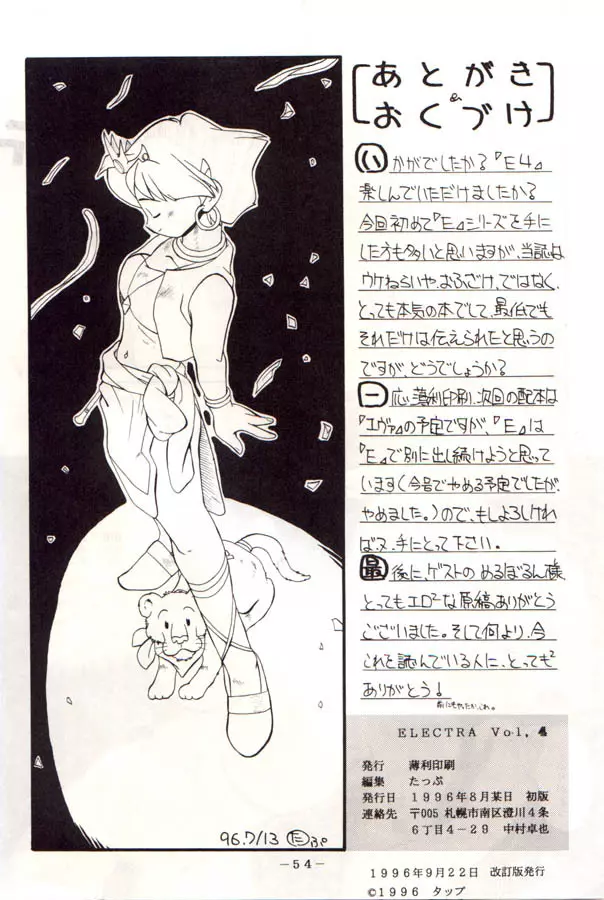 あとがき
&
おくづけ
いかがでしたか?『E4』
楽しんでいただけましたか?
今回初めて『E』シリーズを手に
した方も多いと思いますが、当誌は
ウケねらいや、おふざけ、ではなく、
とっても本気の本でして、最低でも
それだけは伝えられたと思うの
ですが、どうでしょうか?
一応、薄利印刷、次回の配本は
『エヴァ』の予定ですが、『E』は
『E』で別に出し続けようと思って
います(今号でやめる予定でしたが、
やめました。)ので、もしよろしけれ
ば又、手にとって下さい。
最後に、ゲストの めるぼるん様、
とってもエロ²な原稿、ありがとう
ございました。そして何より、今
これを読んでいる人に、とっても²
ありがとう!
前にもやったか、これ。
ELECTRA Vol, 4
発行 薄利印刷
編集 たっぷ
発行日 1996年8月某日 初版
連絡先 〒005 札幌市南区澄川4条
6丁目4-29 中村卓也
1996年9月22日 改訂版発行
©1996 タップ
96.7/13 たっぷ
-54-